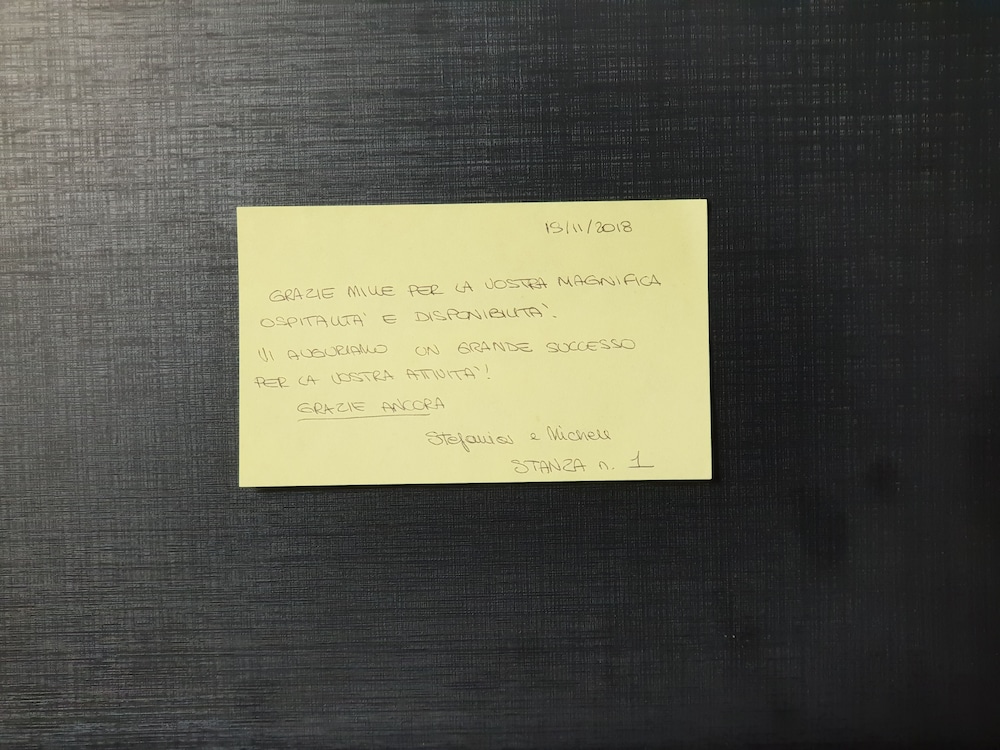 15/11/2018
GRAZIE MILLE PER LA VOSTRA MAGNIFICA
OSPITALITA' E DISPONIBILITA'.
VI AUGURIAMO UN GRANDE SUCCESSO
PER LA VOSTRA ATTIVITA'!
GRAZIE ANCORA
Stefania e Michele
STANZA n. 1